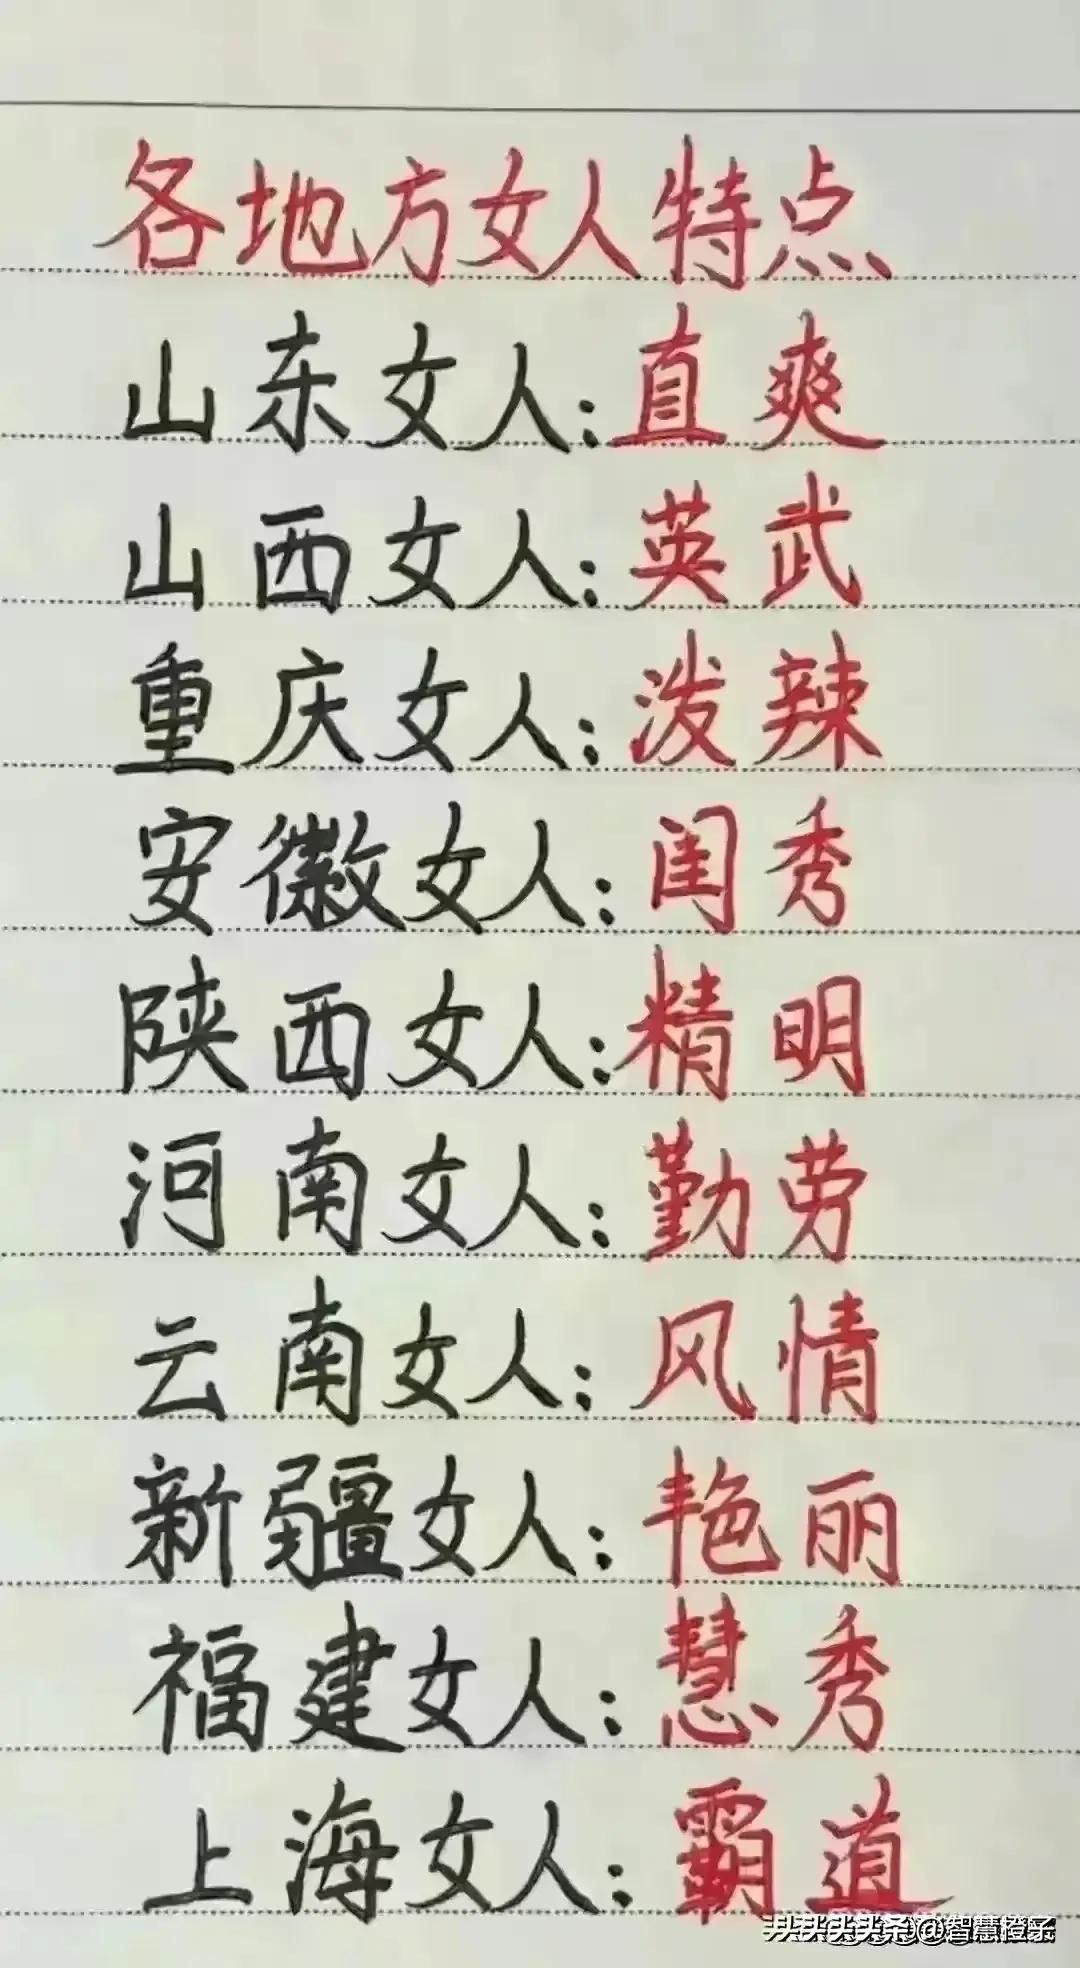 各地方女人特点
山东女人:直爽
山西女人:英武
重庆女人:泼辣
安徽女人:闺秀
陕西女人:精明
河南女人:勤劳
云南女人:风情
新疆女人:艳丽
福建女人:慧秀
上海女人:霸道
头条@智慧橙子